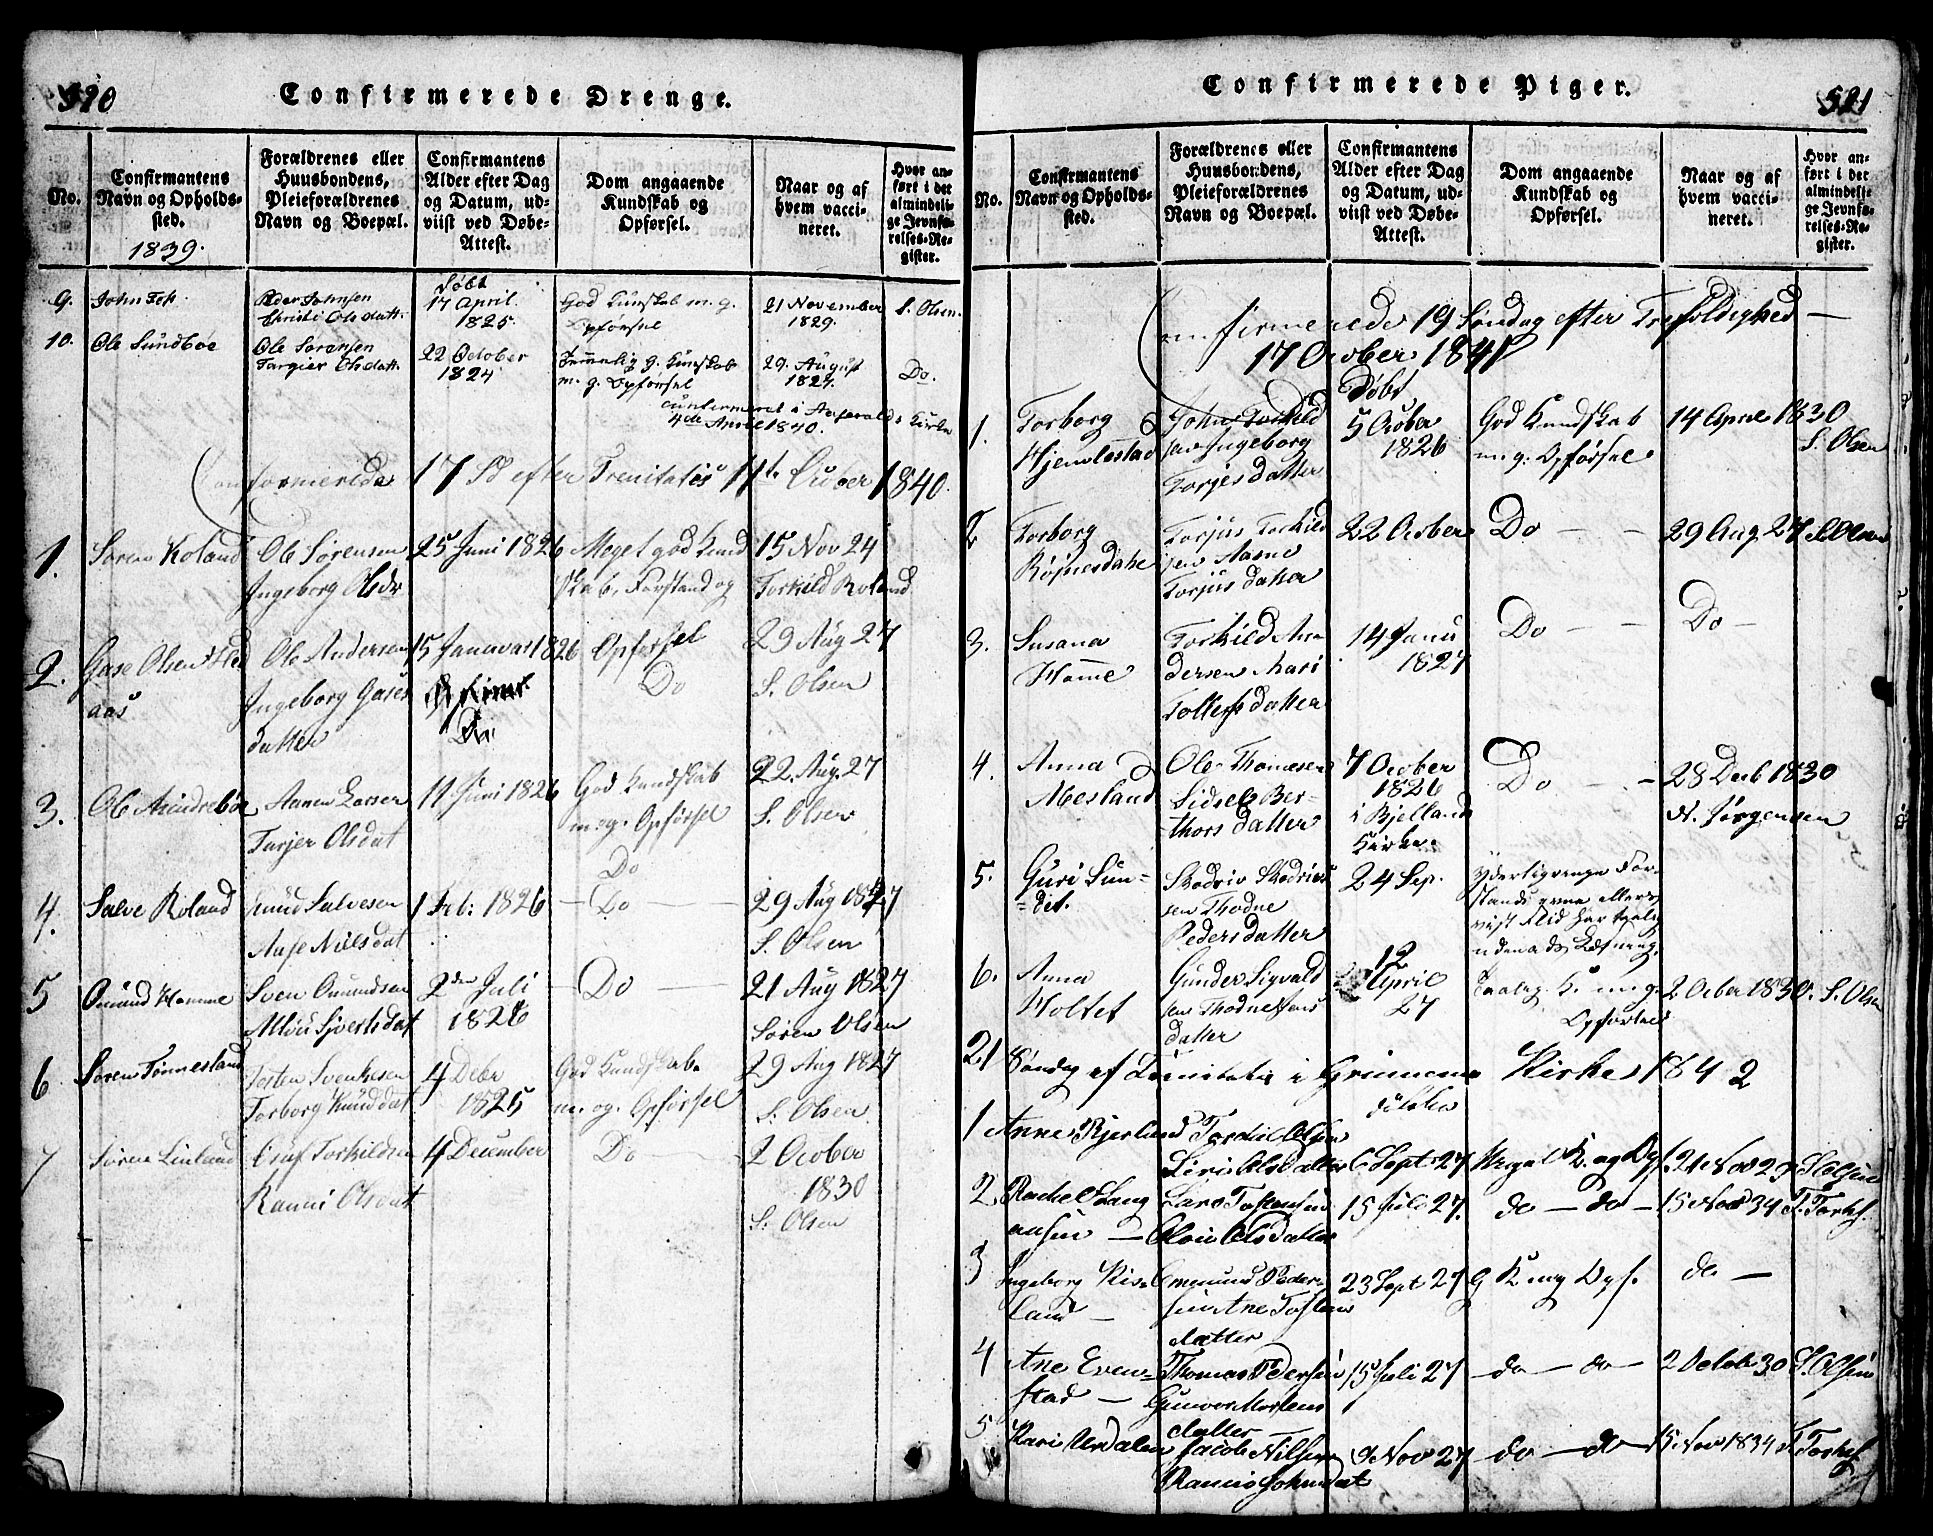 520
Confirmerede Drenge.
No.
Confirmantens
Navn og Opholds-
sted.
1839.
Forældrenes eller
Huusbondens,
Pleieforældrenes
Navn og Boepæl.
Confirmantens
Alder efter Dag
og Datum, ud-
viist ved Døbe-
Attest.
Dom angaaende
Kundskab og
Opførsel.
Naar og af
hvem vacci-
neret.
Hvor an-
ført i det
almindeli-
ge Jevnfø-
relses-Re-
gister.
9.
John
Peder Johnsen
Christi Olsdatt.
Døbt
17 April.
1825.
God Kunskab m. g.
Opførsel
21 November
1829.
S. Olsen.
10.
Ole Sundböe
Ole Sørensen
Targier Olsdatt.
22 October
1824
Temmelig g. Kunskab
m. g. Opførsel
29. August
1827.
Do.
4de April 1840.
Kirke
Confirmerede 17 Sd efter Trenitatis 11te October 1840.
1.
Søren Roland
Ole Sørensen
Ingeborg Olsdr
25 Juni 1826
Meget god Kund
skab, Forstand og
Opførsel
15 Nov 24
Torkild Roland
2.
Gase Olsen
aas
Ole Andersen
Ingeborg Gases
datter
15 Januar 1826
Do
29 Aug 27
S. Olsen
3.
Ole
Aanen Larsen
Tarjer Olsdat
11 Juni 1826
God Kundskab
m. g. Opførsel
Do
22 Aug. 27
S. Olsen
4.
Salve Roland
Knud Salvesen
Aase Nielsdat
1 Feb: 1826
Do
29 Aug 1827
S. Olsen
5
Omund Homme
Sven Omundsen
Sjvertsdat
2den Juli
1826
Do
21 Aug 1827
Søren Olsen
6
Søren Tønnesland
Tosten Svenksen
Torborg Knuddat
4 Debr
1825
God Kundskab
m. og. Opførsel
29 Aug 1827
S. Olsen
7
Sørene Linland
Torkildsen
Ranni Olsdat
4 December
Do
2 October
1830
S. Olsen
521
Confirmerede Piger.
No.
Confirmantens
Navn og Opholds-
sted.
Forældrenes eller
Huusbondens,
Pleieforældrenes
Navn og Boepæl.
Confirmantens
Alder efter Dag
og Datum, ud-
viist ved Døbe-
Attest.
Dom angaaende
Kundskab og
Opførsel.
Naar og af
hvem vacci-
neret.
Hvor an-
ført i det
almindeli-
ge Jevnfø-
relses-Re-
gister.
Confirmerede 19 Søndag efter Trefoldighed
17 October 1841
1.
Torborg
Hjemlestad
John Torkild
sen Ingeborg
Torjesdatter
Døbt
5 October
1826
God Kundskab
m. g: Opførsel
14 April 1830
S. Olsen
2
Torborg
Røjnesdahl
Torjus Terkild
sen Aasne
Torjusdatter
22 October
Do
29 Aug. 27 S. Olsen
3.
Susana
Homme
Torkild An
dersen Mari
Tollefsdatter
14 Janu
1827
Do
Do
4.
Anna
Mesland
Ole Thomesen
Sidsel Ber-
thorsdatter
7 October
1826
i Bjelland
Kirke.
Do
28 Decb 1830
N. Jørgensen
5.
Guri Sun-
det.
sen Thodne
Pedersdatter
24 Sep.
6.
Anna
Holtet
Gunder Sigvald
sen Thodne Jens
datter
12
April
27
Taalig. K. m. g.
Opførsel
2 Octber 1830. S. Olsen
21 Søndag ef Trinitatis i Kirke 1842
1
Anne
Torkil Olsen
Siri Olsdatter
6 Sept 27
Meget K. og Opf.
21 Nov 29
S Olsen
2
Rachel Lang
aasen
Lars Tostensen
Olsdatter
15 Juli 27.
do — do
15 Nov 34
T. Torkf.
3
Ingeborg Ris-
land
Omund Peder-
sen Ane Tosten
datter
23 Sept 27
G K. m g Opf.
do
4
Ane Even-
stad
Thomas Pedersen
Gunvor Mortens
datter
15 Juli 27
do — do
2 Octob 30
S. Olsen
5
Kari Urdalen
Jacob Nilsen
Ranni Johnsdat
9 Nov 27
do — do
15 Nov 1834
T. Torkf